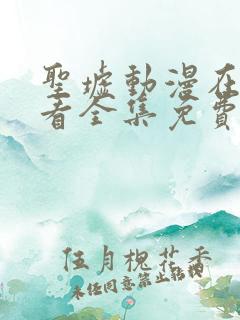 聖墟動漫在
看全集免費
伍月槐花香
未經同意禁止轉載